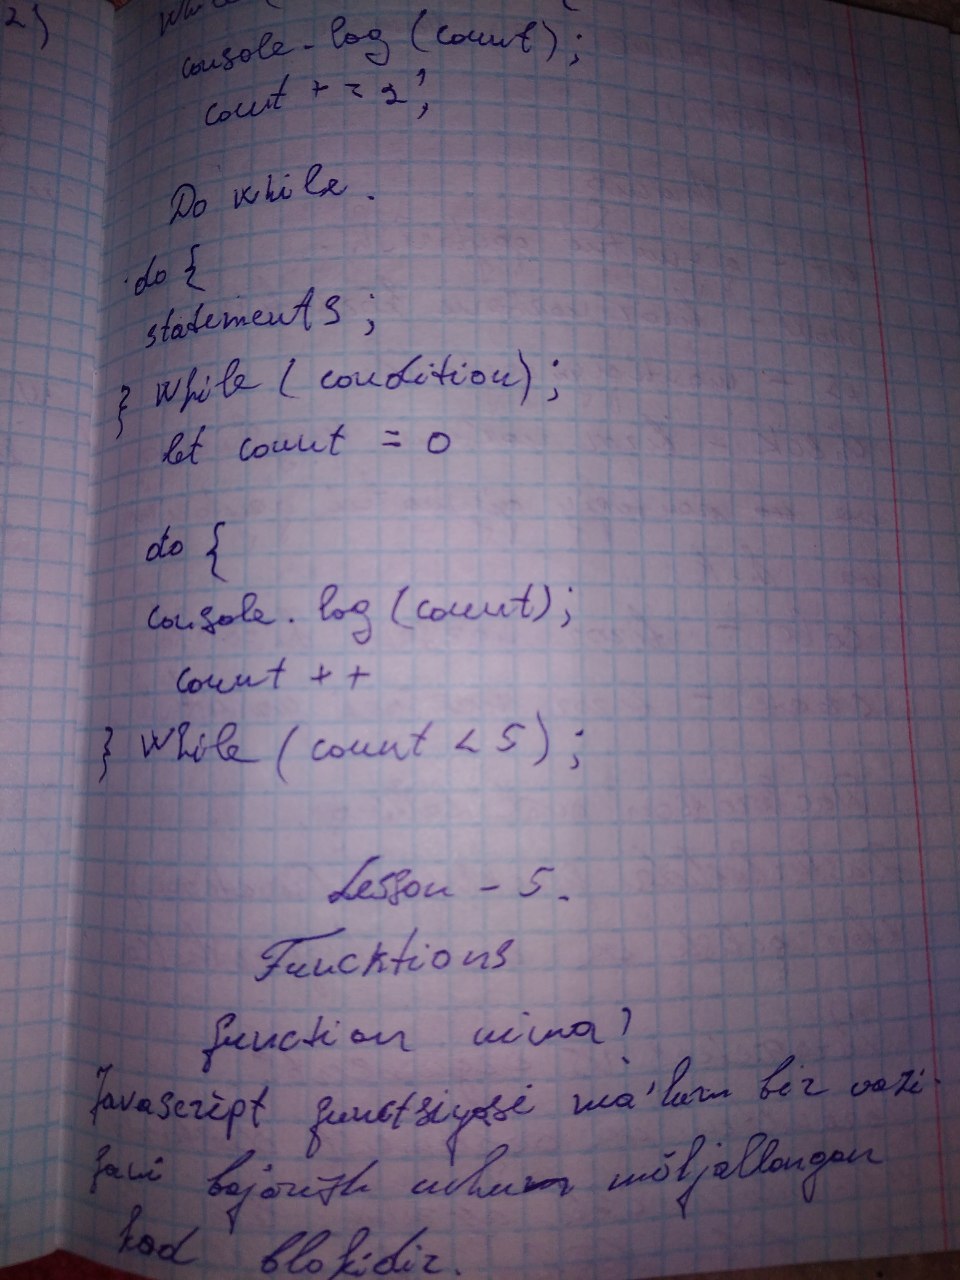 2)
while (
console.log (count);
count += 2;
Do while.
do {
statements;
} while (condition);
let count = 0
do {
console.log (count);
count ++
} while (count < 5);
Lesson - 5.
Funcktions
function nima?
Javascript functsiyasi ma'lum bir vazi
fani bajarish uchun mõljallangan
kod blokidir.